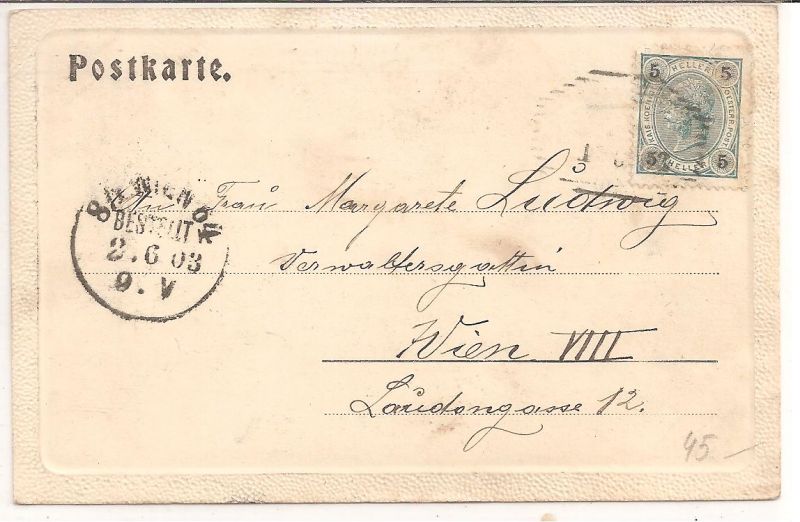 Postkarte.
5 HELLER 5
KAIS. KOENIGL. OESTERR. POST
5 HELLER 5
8/1 WIEN
BESTELLT
2.6 03
9. V
An Frau Margarete Ludwig
Verwaltersgattin
Wien VIII
Laudongasse 12.
45 —